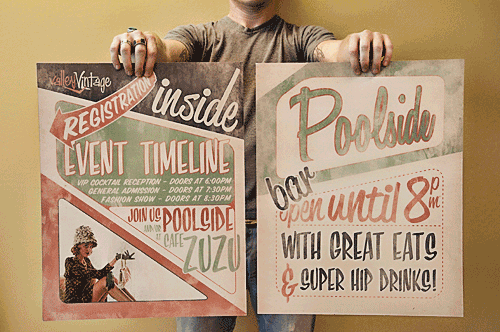 Valley Vintage
REGISTRATION
inside
EVENT TIMELINE
VIP COCKTAIL RECEPTION - DOORS AT 6:00PM
GENERAL ADMISSION - DOORS AT 7:30PM
FASHION SHOW - DOORS AT 8:30PM
JOIN US
AND/OR
AT
POOLSIDE
CAFE
ZUZU
Poolside
bar
open until 8pm
WITH GREAT EATS
& SUPER HIP DRINKS!